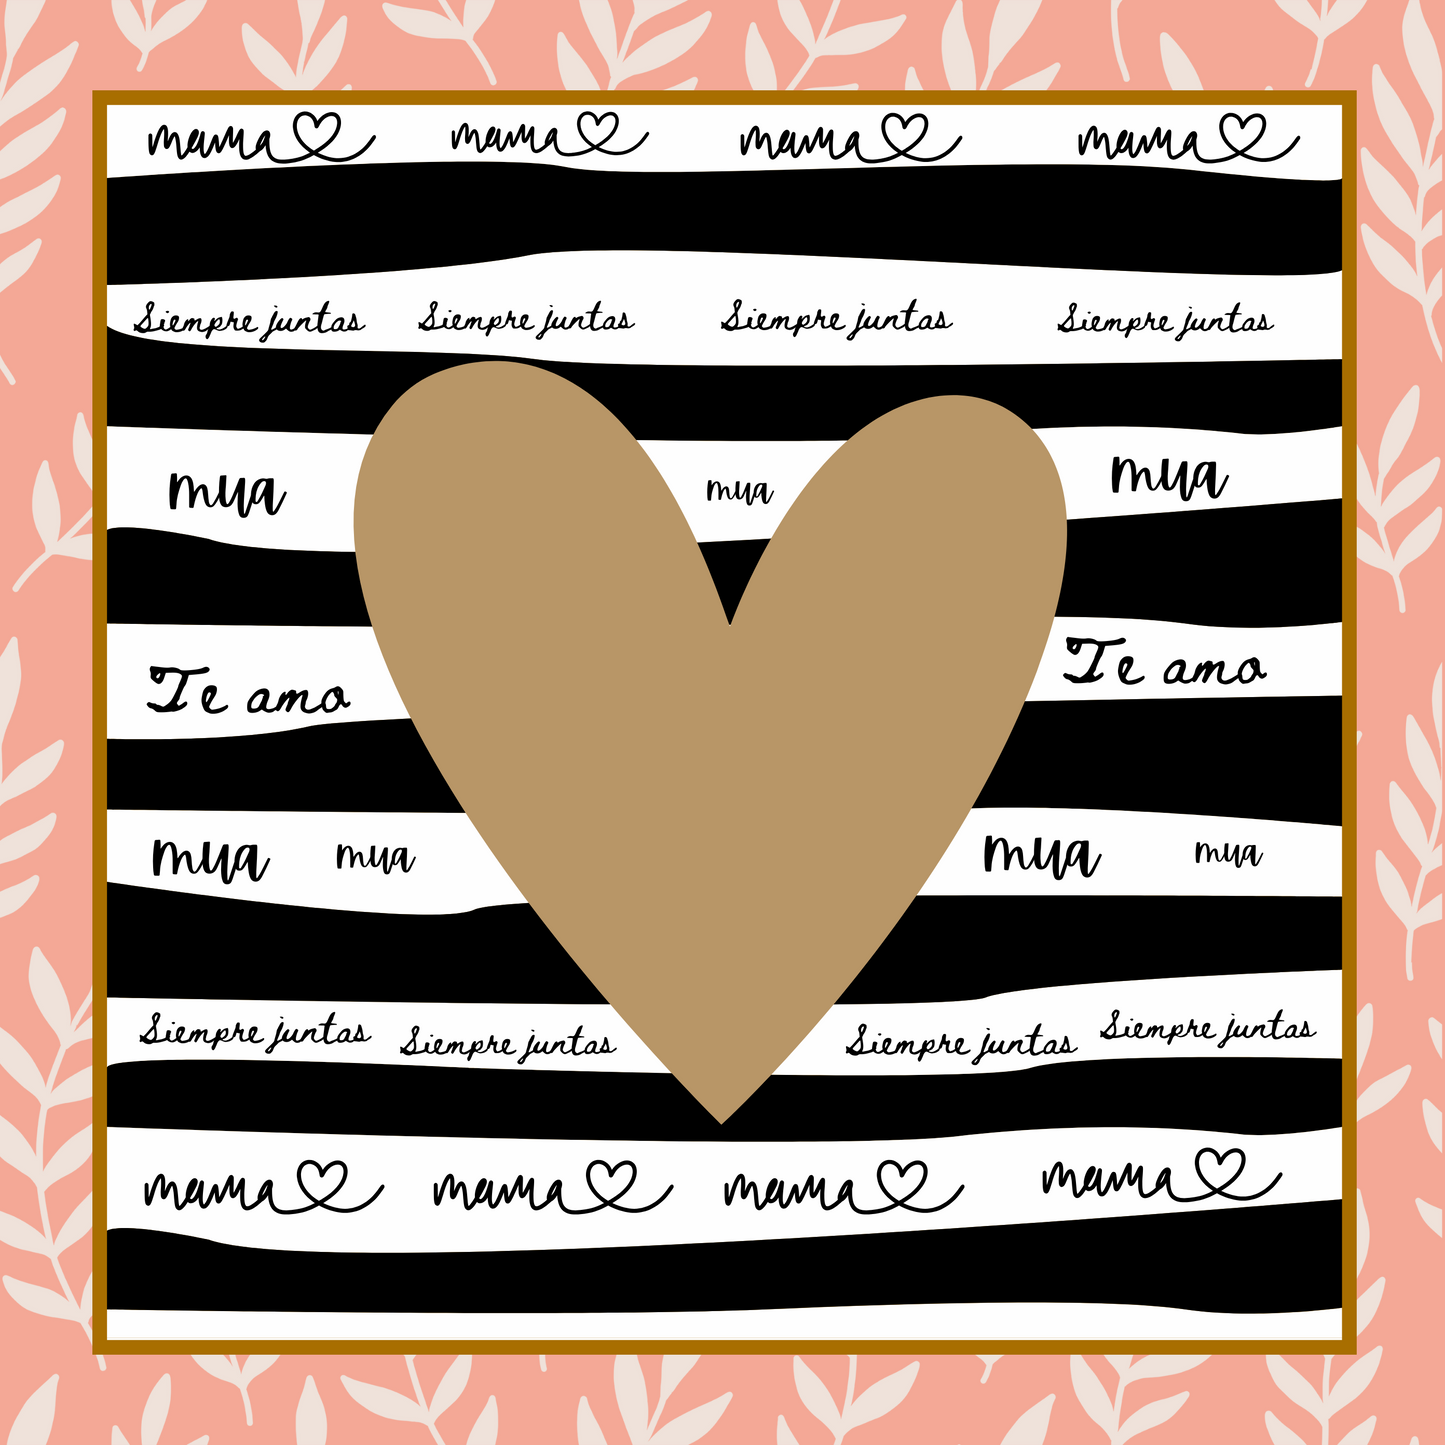 mama mama mama mama
Siempre juntas Siempre juntas Siempre juntas Siempre juntas
mua mua mua
Te amo Te amo
mua mua mua mua
Siempre juntas Siempre juntas Siempre juntas Siempre juntas
mama mama mama mama